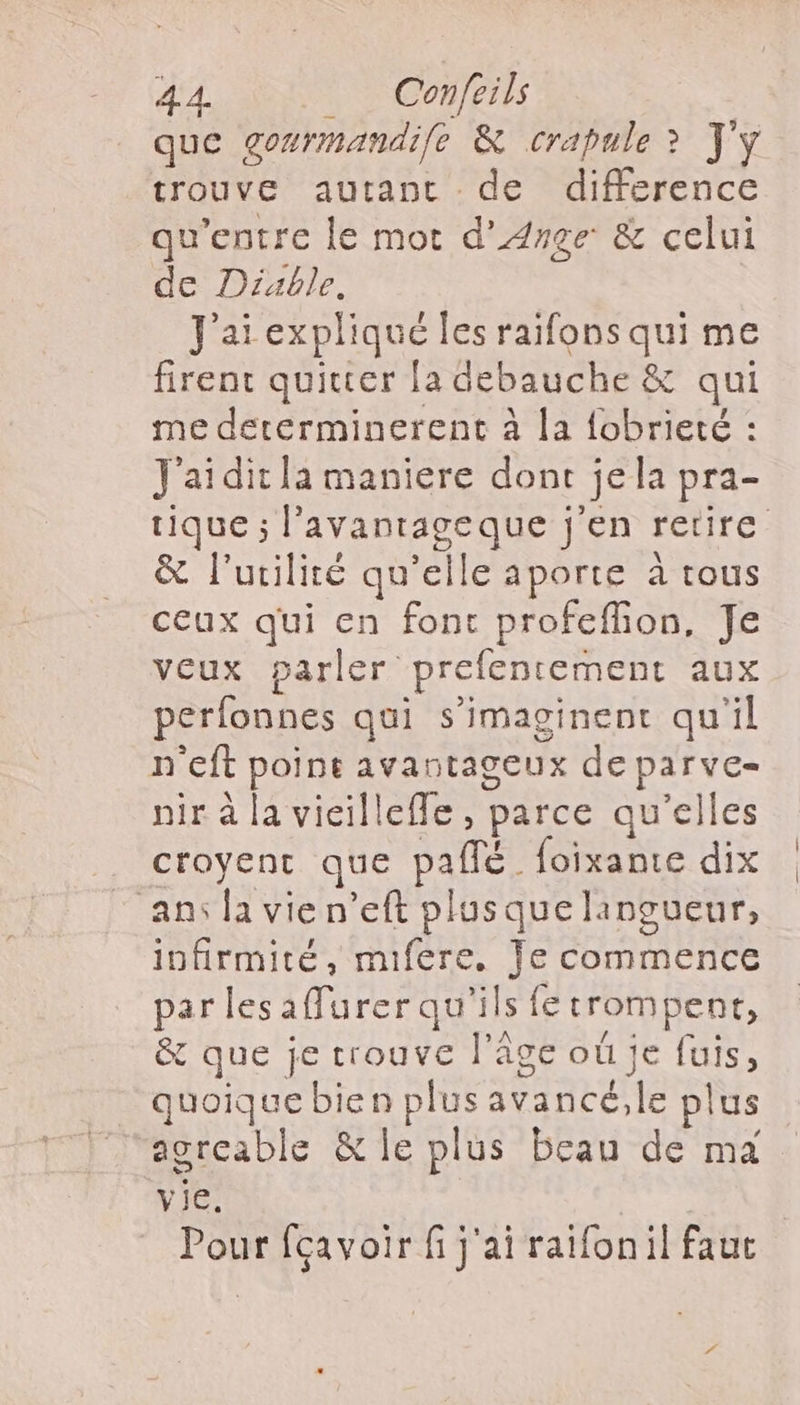 44 Conſeils
que gourmandiſe & crapule ? J'y
trouve autant de difference
qu'entre le mot d'Ange & celui
de Diable.
J'ai expliqué les raiſons qui me
firent quitter la debauche & qui
me determinerent à la ſobrieté :
J'ai dit la maniere dont je la pra-
tique ; l'avantage que j'en retire
& l'utilité qu'elle aporte à tous
ceux qui en font profeſſion. Je
veux parler preſentement aux
perſonnes qui s'imaginent qu'il
n'eſt point avantageux de parve-
nir à la vieilleſſe, parce qu'elles
croyent que paſſé ſoixante dix
ans la vie n'eſt plus que langueur,
infirmité, miſere. Je commence
par les aſſurer qu'ils ſe trompent,
& que je trouve l'âge où je ſuis,
quoique bien plus avancé, le plus
agreable & le plus beau de ma
vie.
Pour ſçavoir ſi j'ai raiſon il faut